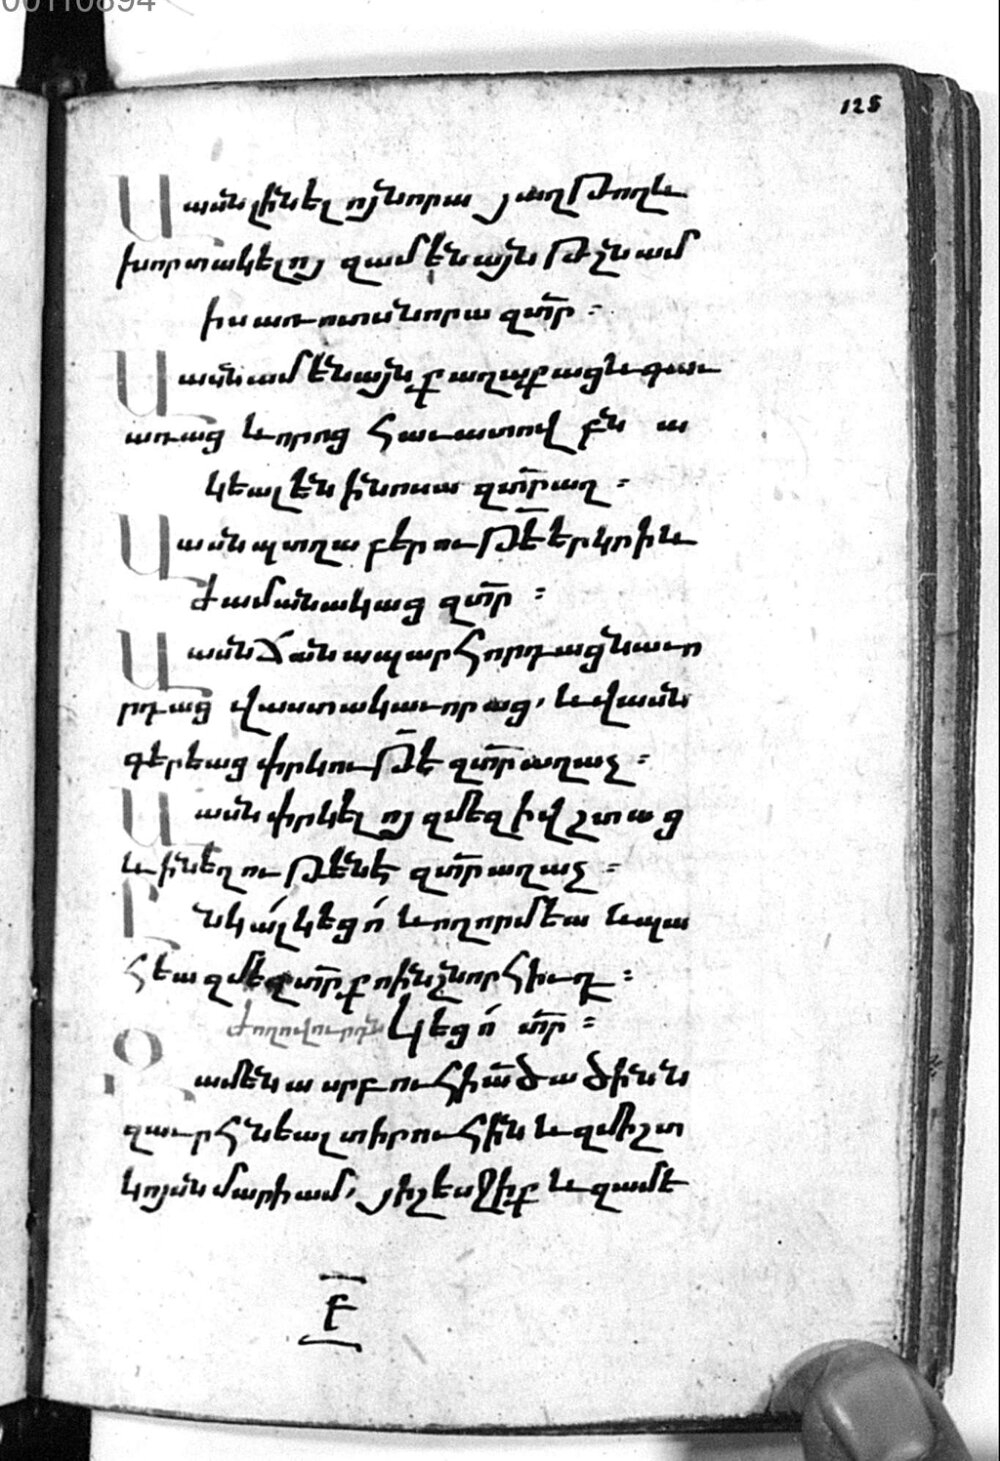 00110894
125
Վասն լինելոյ նորա յաղթող և
խորտակելոյ զամենայն թշնամ
իս առ ոտս նորա զտր ։
Վասն ամենայն քաղաքաց և գաւ
առաց և որոց հաւատով բն ա
կեալ են ի նոսա զտր աղ ։
Վասն պտղաբերութե երկրի և
ժամանակաց զտր ։
Վասն ճանապարհորդաց նաւո
րդաց վաստակաւորաց, և վասն
գերեաց փրկութե զտր աղաչ ։
Վասն փրկելոյ զմեզ ի վշտաց
և ի նեղութենէ զտր աղաչ ։
Ընկալ կեցո և ողորմեա և պա
հեա զմեզ տր քոին շնորհիւդ ։
Ժողովուրդն Կեցո տր ։
Զամենասրբուհի ածածինն
զաւրհնեալ տիրուհին և զմիշտ
կոյսն մարիամ, յիշեսջիք և զամե
Ե